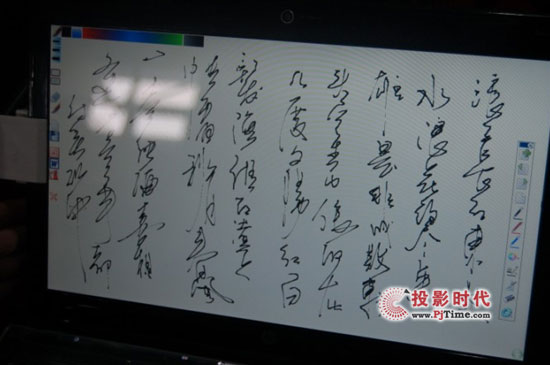 滚滚长江东逝
水浪花淘尽英
雄是非成败转
头空青山依旧在
几度夕阳红白
发渔樵江渚上
惯看秋月春风
一壶浊酒喜相
逢古今多少事都
付笑谈中
投影时代
www.PjTime.com